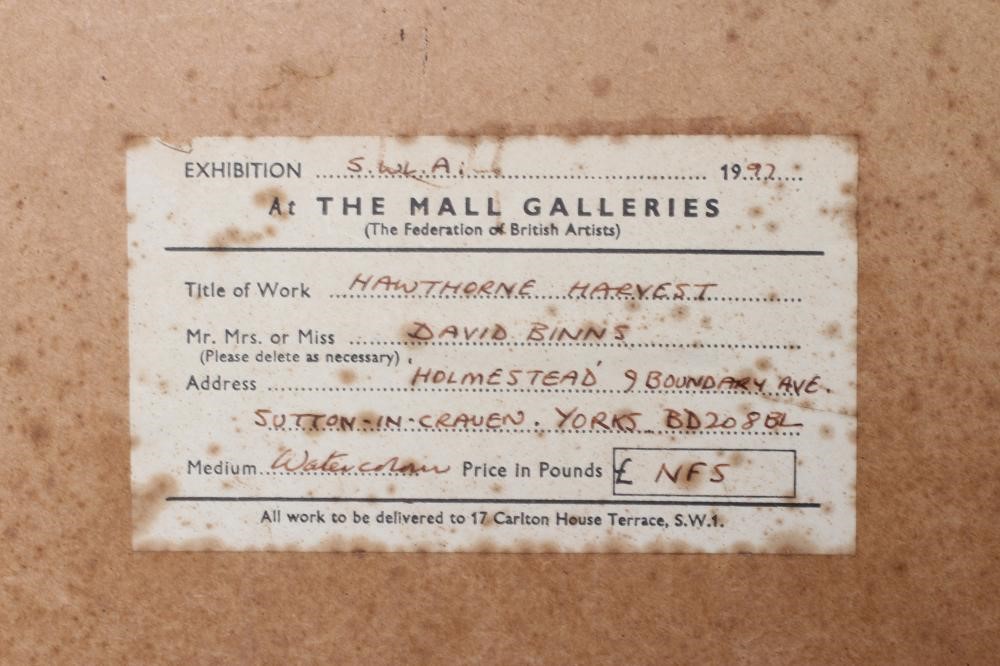 EXHIBITION S.W.L.A. 1992
At THE MALL GALLERIES
(The Federation of British Artists)
Title of Work HAWTHORNE HARVEST
Mr. Mrs. or Miss DAVID BINNS
(Please delete as necessary)
Address 'HOLMESTEAD' 9 BOUNDARY AVE.
SUTTON-IN-CRAVEN. YORKS BD20 8BL
Medium Watercolour Price in Pounds £ NFS
All work to be delivered to 17 Carlton House Terrace, S.W.1.